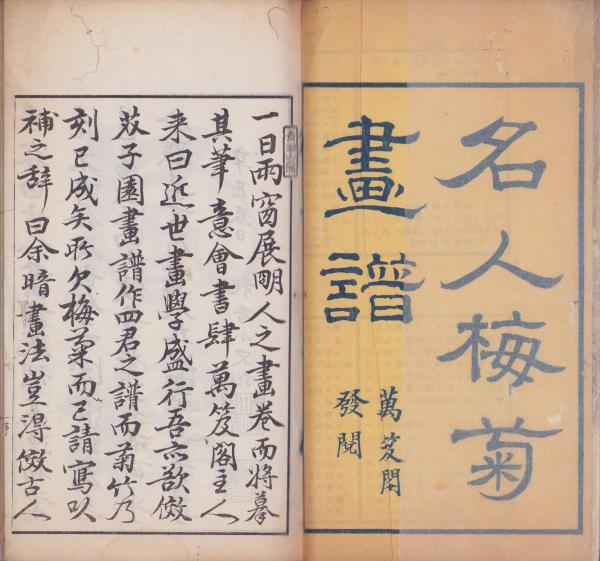 名人梅菊
畫譜
萬笈閣
發閲
一日雨窗展明人之畫卷而將摹
其筆意會書肆萬笈閣主人
来曰近世畫學盛行吾亦欲倣
芥子園畫譜作四君之譜而蘭竹乃
刻已成矣所欠梅菊而已請寫以
補之辞曰余暗畫法豈得倣古人
序